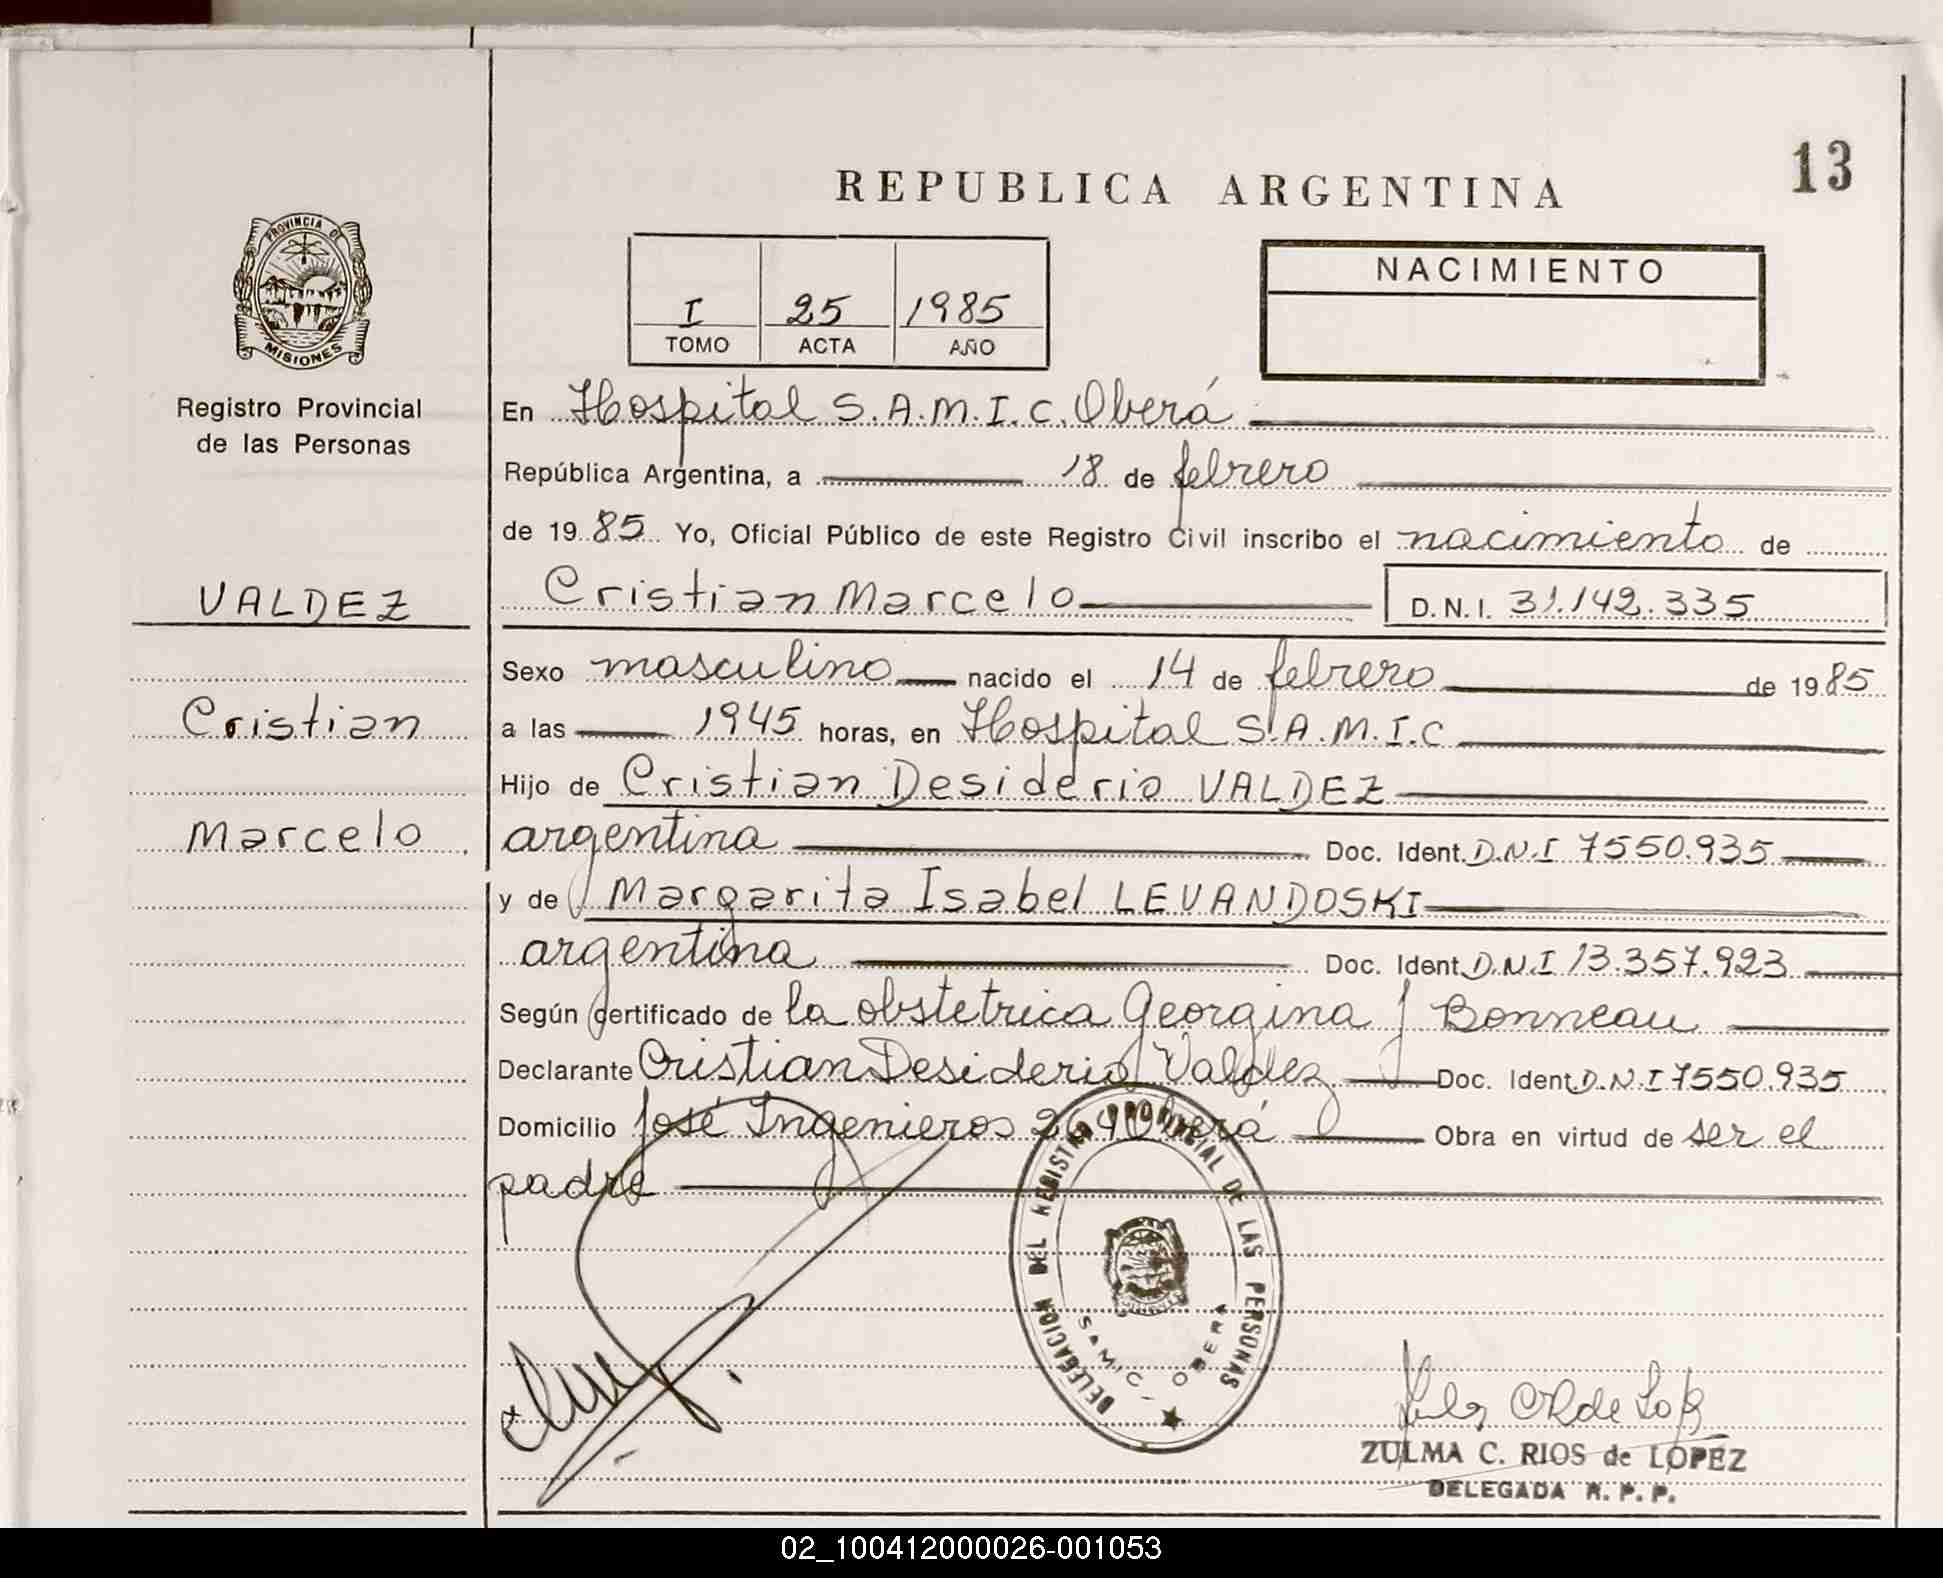 REPUBLICA ARGENTINA
13
PROVINCIA DE
MISIONES
Registro Provincial
de las Personas
I 25 1985
TOMO ACTA AÑO
NACIMIENTO
En Hospital S.A.M.I.C. Oberá
República Argentina, a 18 de febrero
de 1985 Yo, Oficial Público de este Registro Civil inscribo el nacimiento de
VALDEZ
Cristian Marcelo D.N.I. 31.142.335
Sexo masculino nacido el 14 de febrero de 1985
Cristian
a las 1945 horas, en Hospital S.A.M.I.C
Hijo de Cristian Desiderio VALDEZ
Marcelo
argentina Doc. Ident. D.N.I 7550.935
y de Margarita Isabel LEVANDOSKI
argentina Doc. Ident. D.N.I 13.357.923
Según certificado de la obstetrica Georgina J Bonneau
Declarante Cristian Desiderio Valdez Doc. Ident. D.N.I 7550.935
Domicilio José Ingenieros Oberá Obra en virtud de ser el
padre
DELEGACION DEL REGISTRO PROVINCIAL DE LAS PERSONAS
SAMIC - OBERA
ZULMA C. RIOS de LOPEZ
DELEGADA R. P. P.
02_100412000026-001053